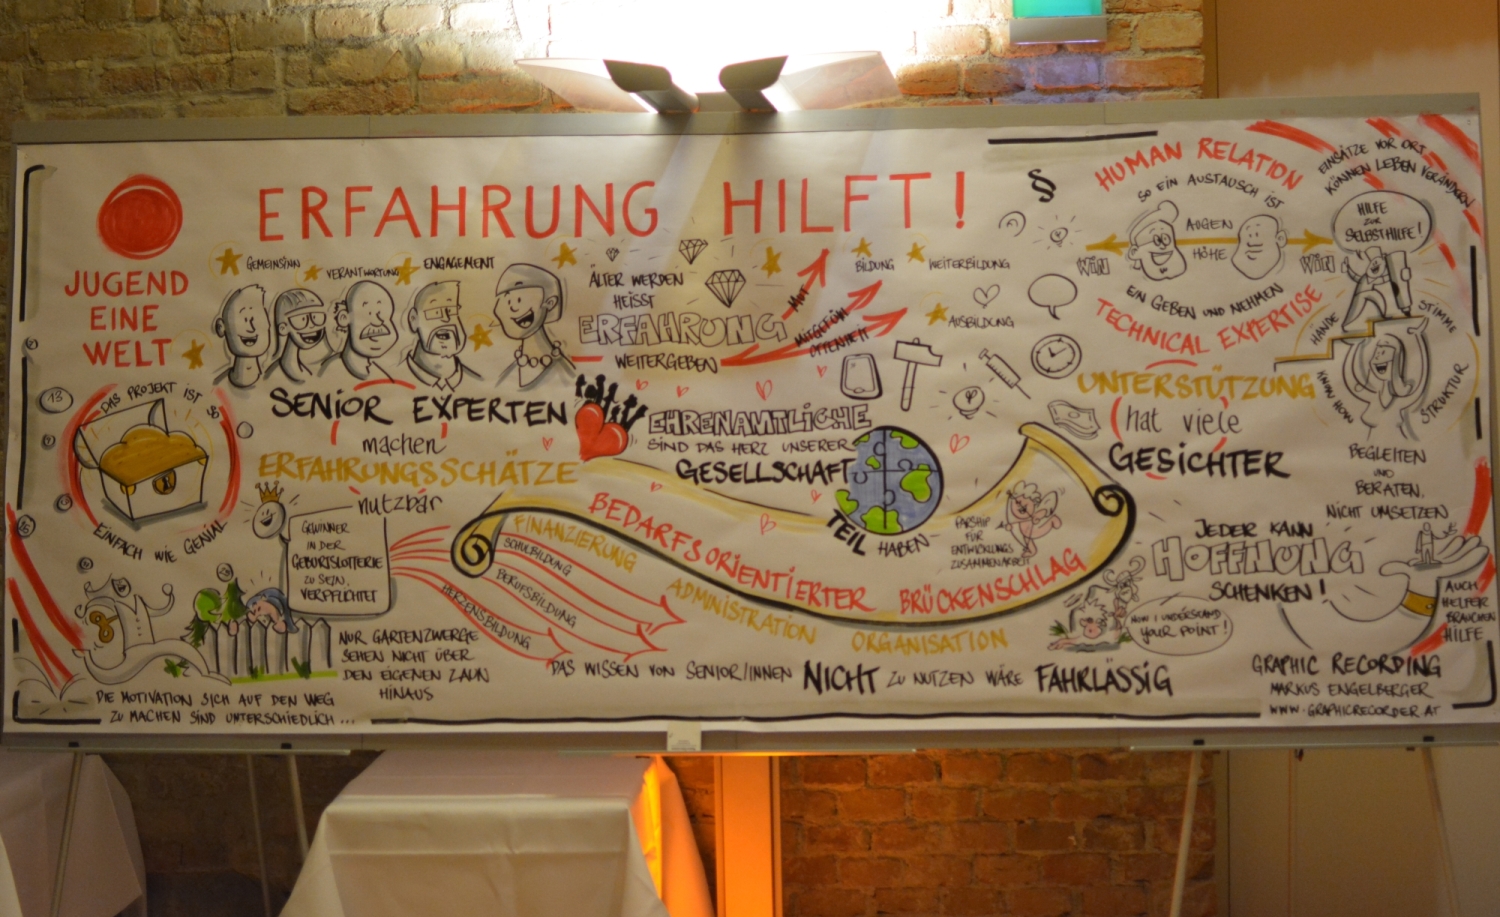 ERFAHRUNG HILFT!
JUGEND
EINE
WELT
GEMEINSINN
VERANTWORTUNG
ENGAGEMENT
SENIOR EXPERTEN
machen
ERFAHRUNGSSCHÄTZE
nutzbar
DAS PROJEKT IST SO
EINFACH WIE GENIAL
13
GEWINNER
IN DER
GEBURTSLOTTERIE
ZU SEIN,
VERPFLICHTET
NUR GARTENZWERGE
SEHEN NICHT ÜBER
DEN EIGENEN ZAUN
HINAUS
DIE MOTIVATION SICH AUF DEN WEG
ZU MACHEN SIND UNTERSCHIEDLICH ...
ÄLTER WERDEN
HEISST
ERFAHRUNG
WEITERGEBEN
MUT
MITGEFÜHL
OFFENHEIT
BILDUNG
WEITERBILDUNG
AUSBILDUNG
EHRENAMTLICHE
SIND DAS HERZ UNSERER
GESELLSCHAFT
TEIL HABEN
BEDARFSORIENTIERTER BRÜCKENSCHLAG
FINANZIERUNG
ADMINISTRATION
ORGANISATION
SCHULBILDUNG
BERUFSBILDUNG
HERZENSBILDUNG
DAS WISSEN VON SENIOR/INNEN NICHT ZU NUTZEN WÄRE FAHRLÄSSIG
PARSHIP
FÜR
ENTWICKLUNGS
ZUSAMMENARBEIT
§
HUMAN RELATION
SO EIN AUSTAUSCH IST
AUGEN
HÖHE
WIN
WIN
EIN GEBEN UND NEHMEN
TECHNICAL EXPERTISE
UNTERSTÜTZUNG
hat viele
GESICHTER
EINSÄTZE VOR ORT
KÖNNEN LEBEN VERÄNDERN
HILFE
ZUR
SELBSTHILFE!
HÄNDE
STIMME
KNOW HOW
STRUKTUR
BEGLEITEN
UND
BERATEN,
NICHT UMSETZEN
JEDER KANN
HOFFNUNG
SCHENKEN!
NOW I UNDERSTAND
YOUR POINT!
AUCH
HELFER
BRAUCHEN
HILFE
GRAPHIC RECORDING
MARKUS ENGELBERGER
WWW.GRAPHICRECORDER.AT